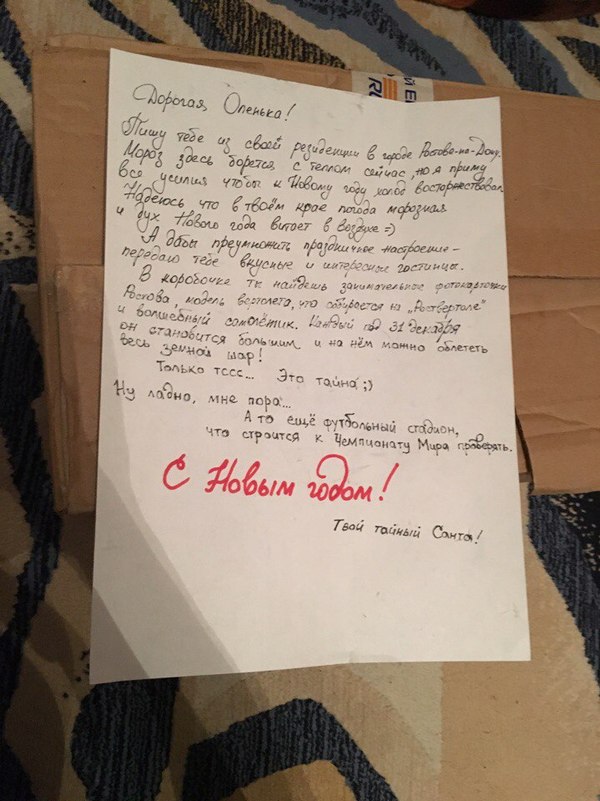 Й Е
RU
Дорогая, Оленька!
Пишу тебе из своей резиденции в городе Ростове-на-Дону.
Мороз здесь борется с теплом сейчас, но я приму
все усилия чтобы к Новому году холод восторжествовал.
Надеюсь что в твоём крае погода морозная
и дух Нового года витает в воздухе =)
А дабы преумножить праздничное настроение -
передаю тебе вкусные и интересные гостинцы.
В коробочке ты найдешь занимательные фотокарточки
Ростова, модель вертолета, что собирается на „Роствертоле"
и волшебный самолётик. Каждый год 31 декабря
он становится большим и на нём можно облететь
весь земной шар!
Только тссс... Это тайна ;)
Ну ладно, мне пора...
А то ещё футбольный стадион,
что строится к Чемпионату Мира проверять.
С Новым годом!
Твой тайный Санта!